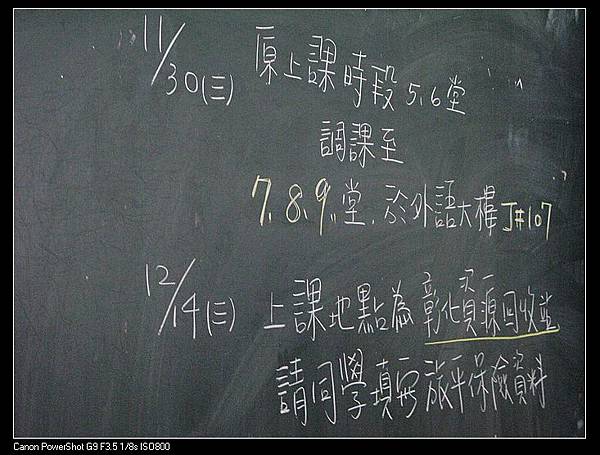 11/30(三) 原上課時段 5、6堂
調課至
7、8、9、堂、於外語大樓J#107
12/14(三) 上課地點為彰化資源回收站
請同學填寫旅平保險資料
Canon PowerShot G9 F3.5 1/8s ISO800